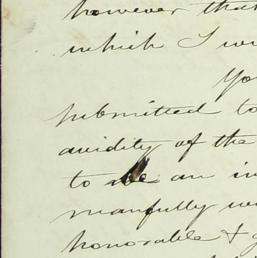 however that
which I w
Yo
submitted to
avidity of the
to me an in
manfully w
honorable & g